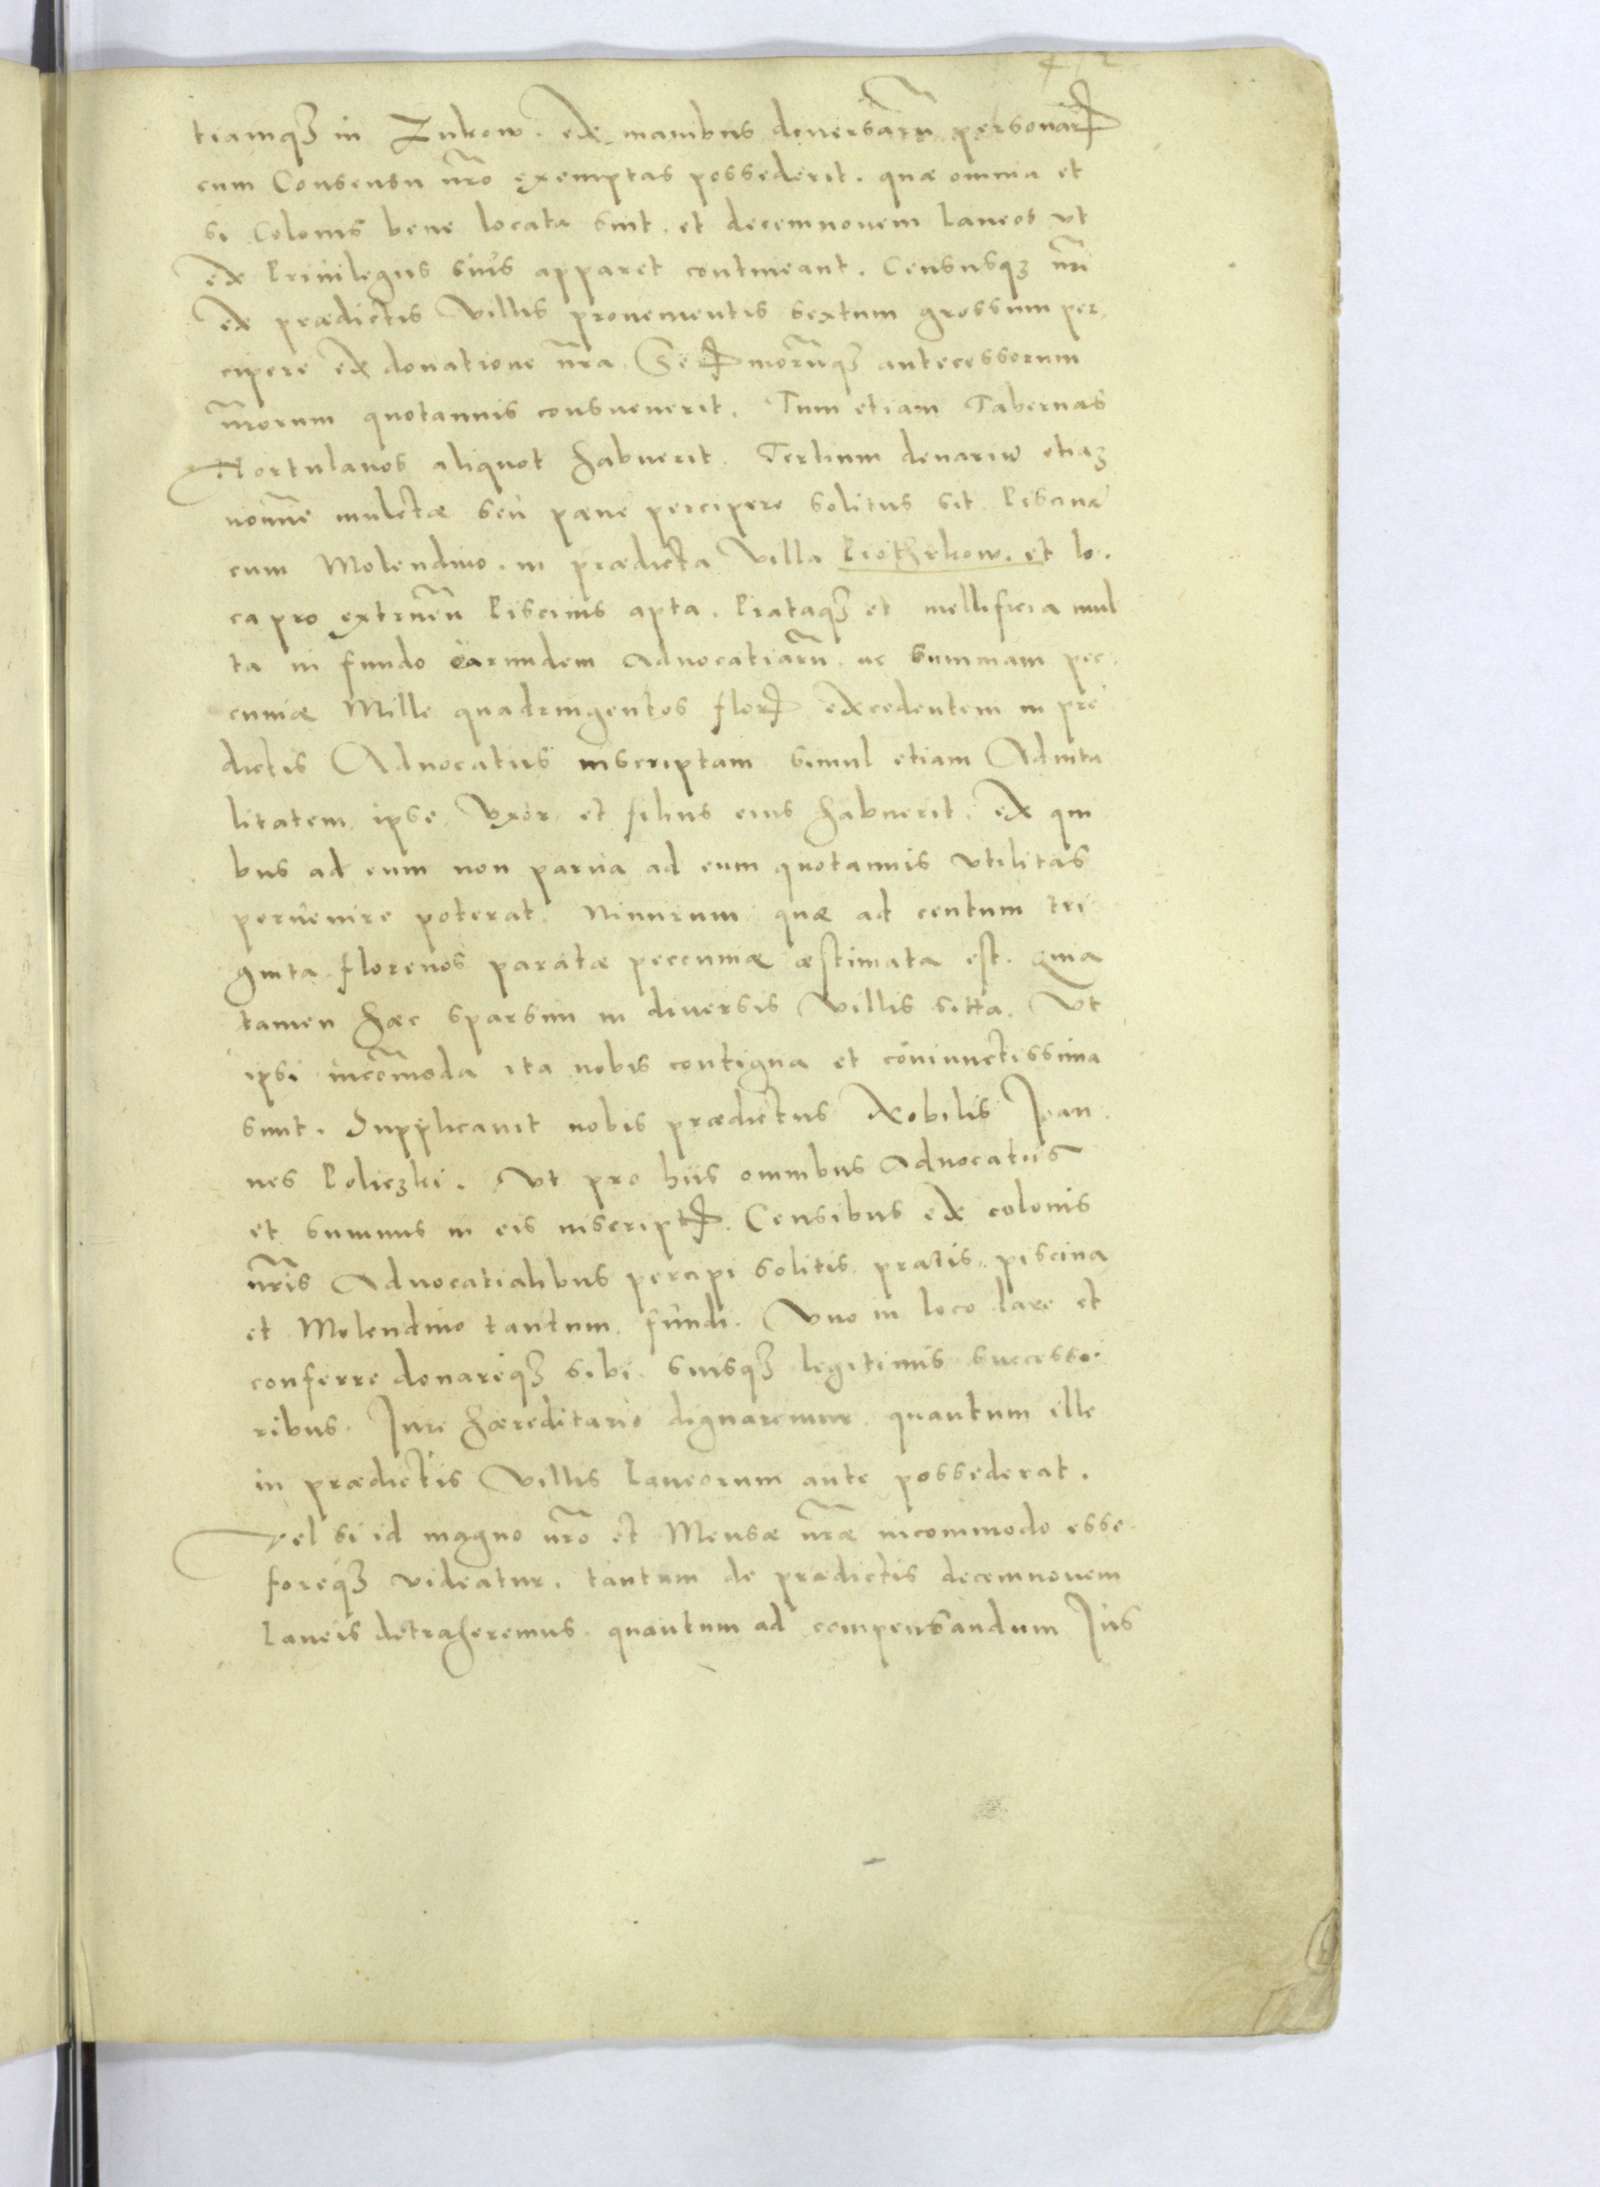 tiamq₃ in Zukow. ex manibus diuersarū personar
cum Consensu nr̄o exemptas possederit. quæ omnia et
si Colonis bene locata sint. et decemnouem laneos vt
ex Priuilegiis suis apparet contineant. Censusq₃ nr̄i
ex prædictis Villis prouenientis sextum grossum per,
cipere ex donatione nr̄a Ser morūq₃ antecessorum
nr̄orum quotannis consueuerit. Tum etiam Tabernas
Hortulanos aliquot habuerit. Tertium denariū etia₃
nomine mulctæ seu pæne percipere solitus sit. Piscinā
cum Molendino. in prædicta Villa Piothrkow. et lo.
ca pro extruen̄ Piscinis apta. Prataq₃ et mellificia mul
ta in fundo earundem Aduocatiarū. ac summam pec.
cuniæ Mille quadringentos flor excedentem in præ
dictis Aduocatiis inscriptam simul etiam Aduita
litatem ipse Vxor et filius eius habuerit. Ex qui
bus ad eum non parua ad eum quotannis vtilitas
peruenire poterat. Nimirum quæ ad centum tri
ginta florenos paratæ peccuniæ æstimata est. quia
tamen hæc sparsim in diuersis Villis sitta. Vt
ipsi incōmoda ita nobis contigua et coniunctissima
sunt. Supplicauit nobis prædictus Nobilis Joan.
nes Policzki. Vt pro hiis omnibus Aduocatiis
et summis in eis inscript. Censibus ex colonis
nr̄is Aduocatialibus percipi solitis pratis. piscina
et Molendino tantum fundi. Vno in loco dare et
conferre donareq₃ sibi. suisq₃ legitimis successo.
ribus. Jure hæreditario dignaremur quantum ille
in prædictis Villis laneorum ante possederat.
Vel si id magno nr̄o et Mensæ nr̄æ incommodo esse.
foreq₃ videatur. tantum de prædictis decemnouem
laneis detraheremus. quantum ad compensandum Jus